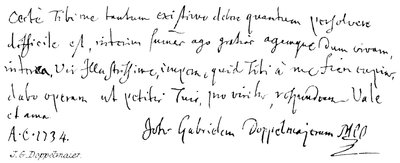 Certè Tibi me tantum existimo debere quantum persolvere
difficile est, interim summas ago gratias agamque dum vivam,
interea, Vir Illustrissime, impera, quid Tibi à me fieri cupias,
dabo operam ut petitis Tuis, pro virili, respondeam. Vale
et ama
A. C. 1734. Joh. Gabrielem Doppelmajerum
J. G. Doppelmaier.